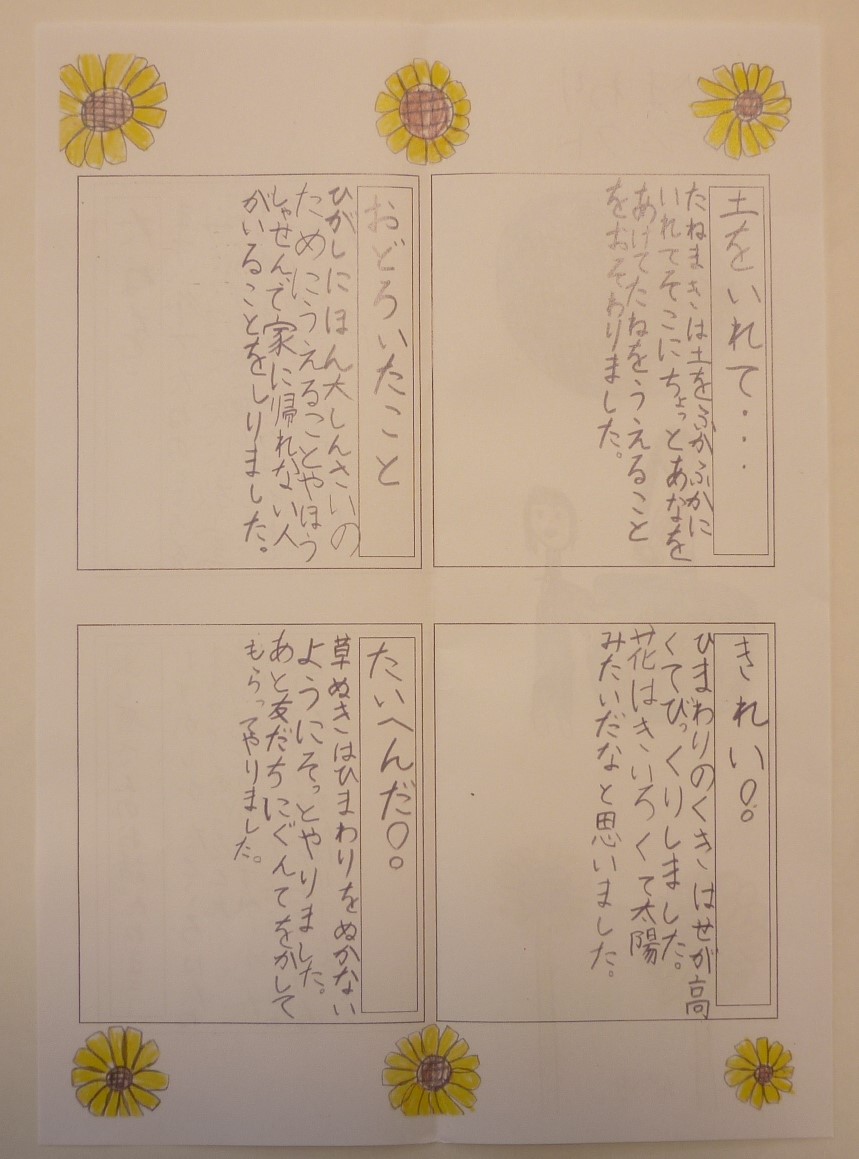 土をいれて・・・
たねまきは土をふかふかに
いれてそこにちょっとあなを
あけてたねをうえること
をおそわりました。
おどろいたこと
ひがしにほん大しんさいの
ためにうえることやほう
しゃせんで家に帰れない人
がいることをしりました。
きれい!
ひまわりのくきはせが高
くてびっくりしました。
花はきいろくて太陽
みたいだなと思いました。
たいへんだ!。
草ぬきはひまわりをぬかない
ようにそっとやりました。
あと友だちにぐんてをかして
もらってやりました。